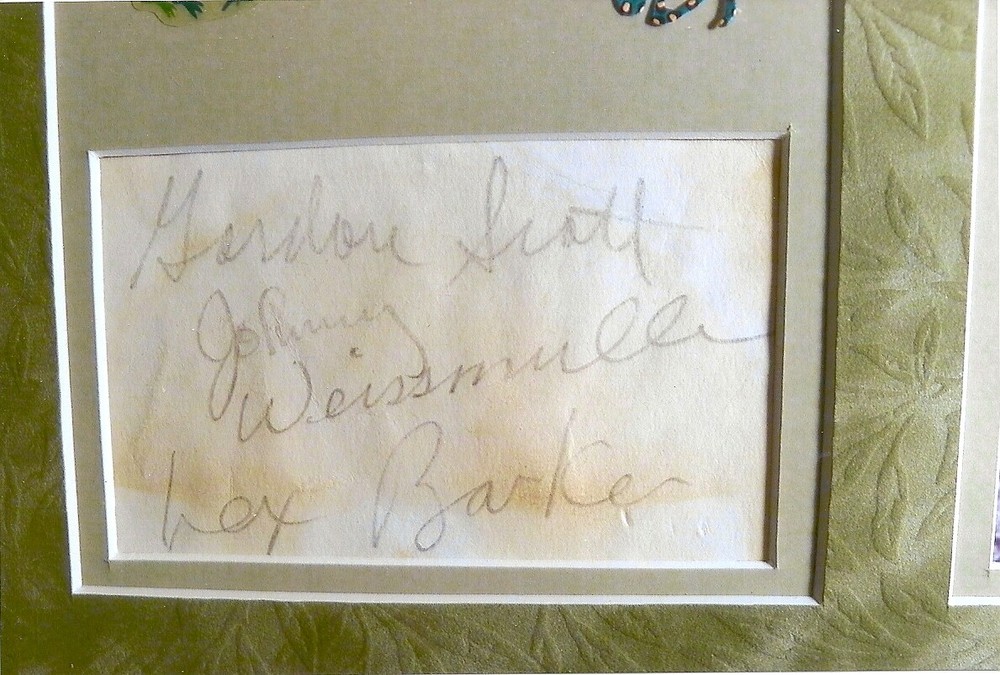 Gordon Scott
Johnny
Weissmuller
Lex Barker